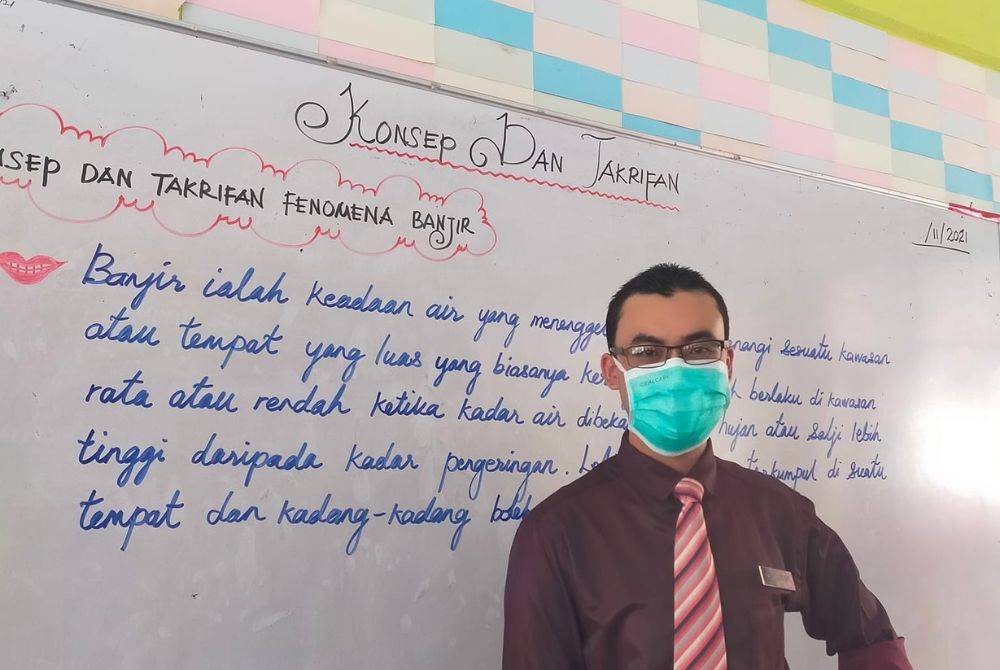 KONSEP DAN TAKRIFAN
DAN TAKRIFAN FENOMENA BANJIR
/11/2021
Banjir ialah keadaan air yang sesuatu kawasan
atau tempat yang luas yang biasanya berlaku di kawasan
rata atau rendah ketika kadar air hujan atau salji lebih
tinggi daripada kadar pengeringan. terkumpul di suatu
tempat dan kadang-kadang